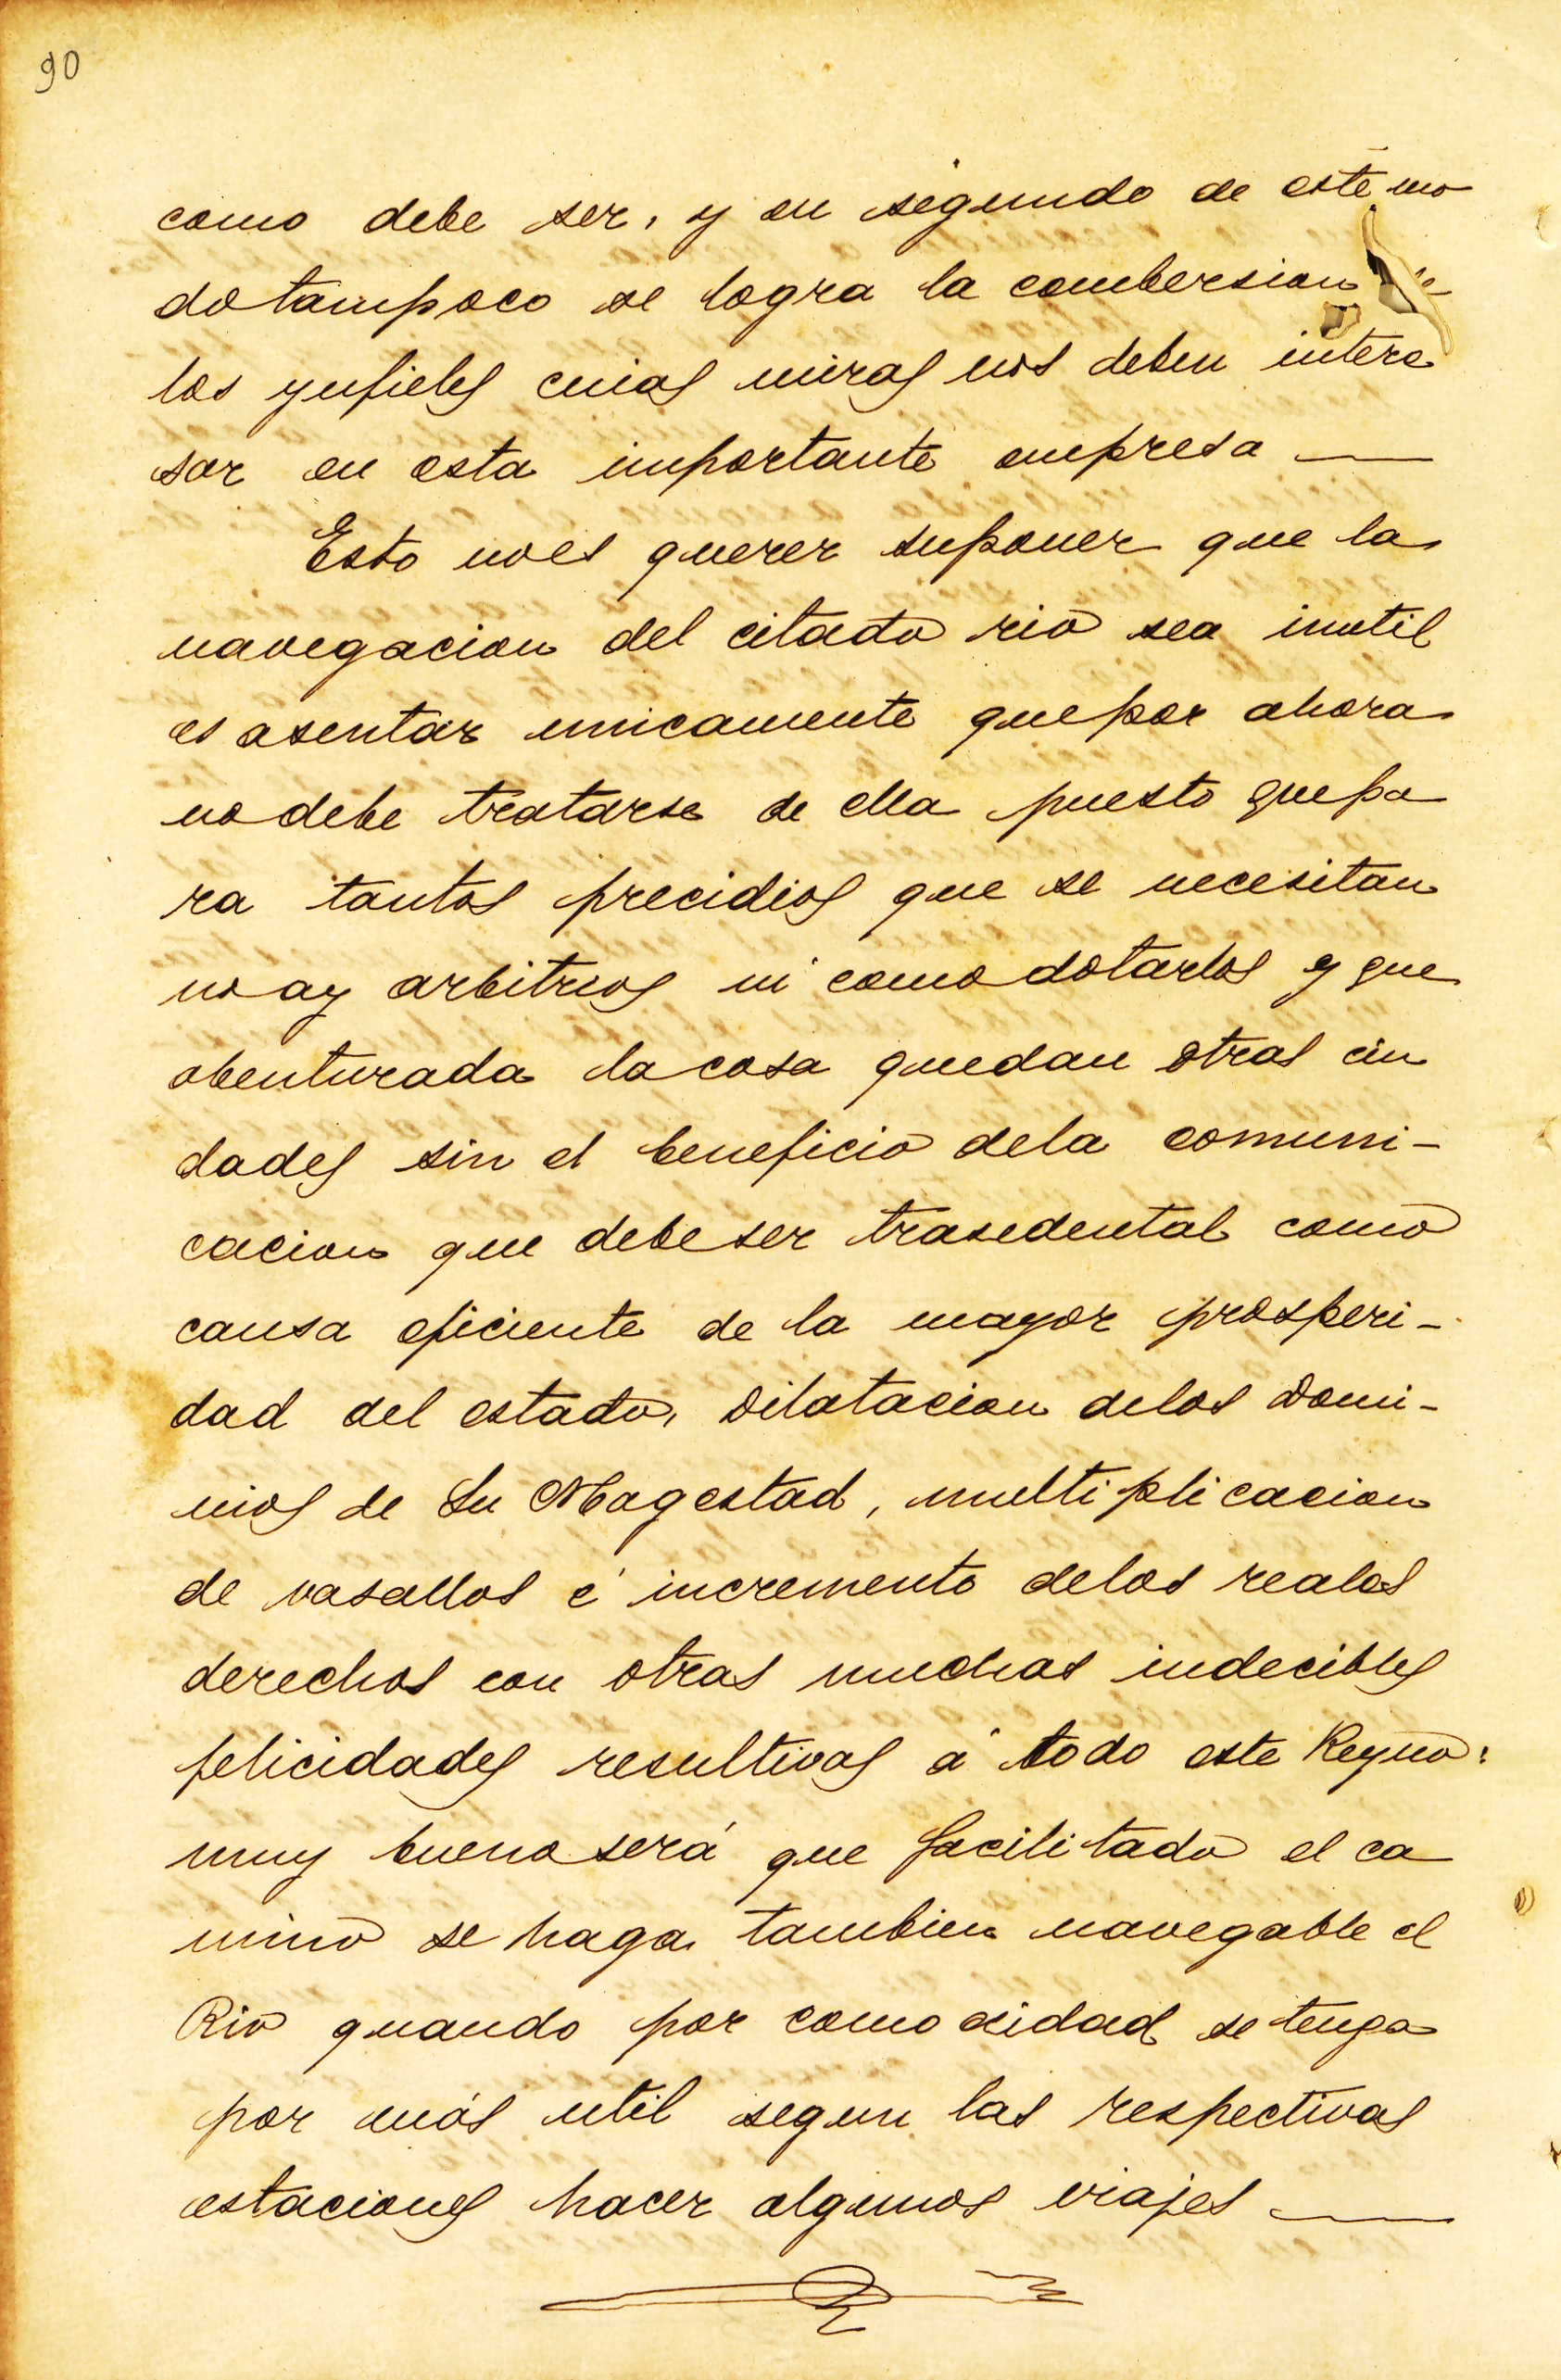 90
como debe ser, y en segundo de este mo
do tampoco se logra la combersion de
los ynfieles cuias miras nos deben intere
sar en esta importante empresa —
Esto noes querer suponer que la
navegacion del citado rio sea inutil
es asentar unicamente quepor ahora
no debe tratarse de ella puesto quepa
ra tantos precidios que se necesitan
no ay arbitrios ni como dotarlos y que
abenturada la cosa quedan otras ciu
dades sin el beneficio dela comuni-
cacion que debe ser trasedental como
causa eficiente de la mayor prosperi-
dad del estado, Dilatacion delos Domi-
nios de Su Magestad, multiplicacion
de vasallos é incremento delos reales
derechos con otras muchas indecibles
felicidades resultivas á todo este Reyno:
muy bueno será que facilitado el ca
mino se haga tambien navegable el
Rio quando por comodidad se tenga
por más util segun las respectivas
estaciones hacer algunos viajes —